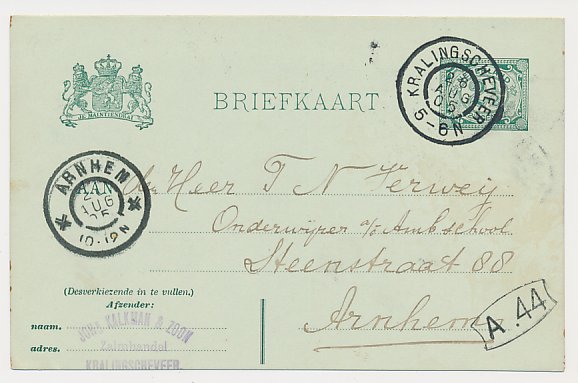 JE MAINTIENDRAI
BRIEFKAART
KRALINGSCHEVEER
AUG
05
5-6N
ARNHEM
AAN
AUG
05
10-12N
Heer T N Verweij
Onderwijzer a/d Ambschool
Steenstraat 88
Arnhem
A.44
(Desverkiezende in te vullen.)
Afzender:
naam.
adres.
JOHS. KALKMAN & ZOON
Zalmhandel
KRALINGSCHEVEER.